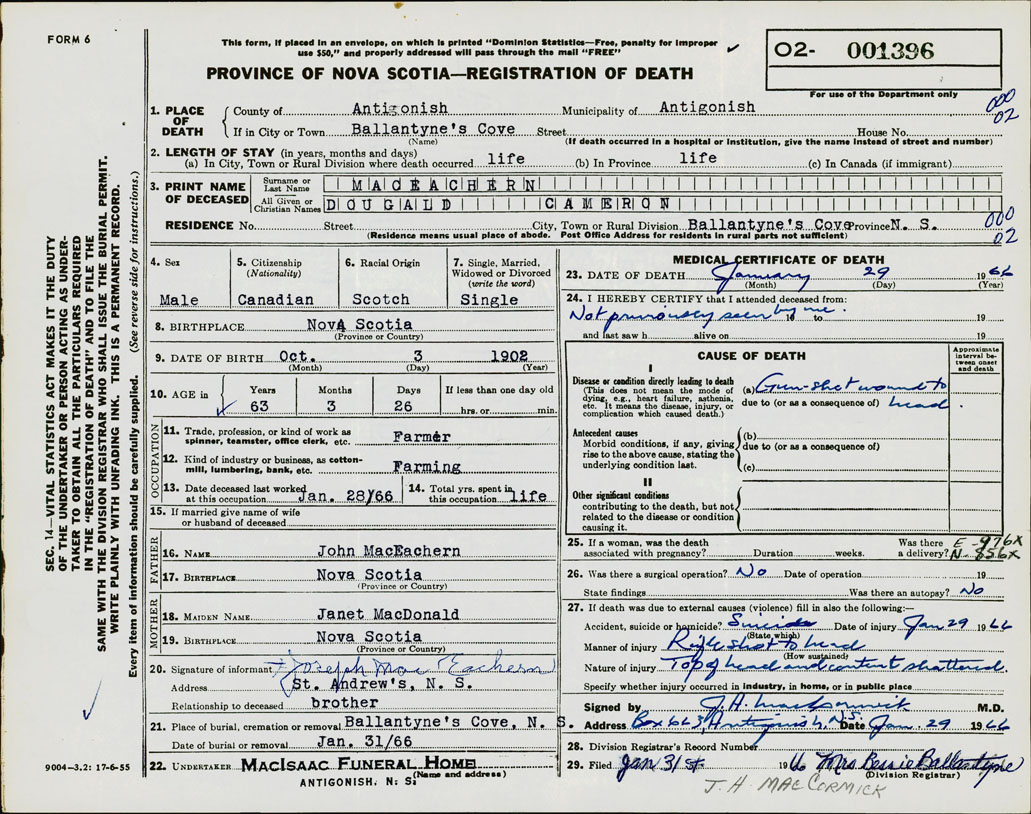 FORM 6
This form, if placed in an envelope, on which is printed "Dominion Statistics—Free, penalty for improper
use $50," and properly addressed will pass through the mail "FREE"
O2- 001396
For use of the Department only
PROVINCE OF NOVA SCOTIA—REGISTRATION OF DEATH
000
02
1. PLACE OF DEATH County of Antigonish Municipality of Antigonish
If in City or Town Ballantyne's Cove Street House No.
(Name) (If death occurred in a hospital or institution, give the name instead of street and number)
2. LENGTH OF STAY (in years, months and days)
(a) In City, Town or Rural Division where death occurred life (b) In Province life (c) In Canada (if immigrant)
3. PRINT NAME OF DECEASED Surname or Last Name MACEACHERN
All Given or Christian Names DOUGALD CAMERON
RESIDENCE No. Street City, Town or Rural Division Ballantyne's Cove Province N. S.
(Residence means usual place of abode. Post Office Address for residents in rural parts not sufficient)
000
02
4. Sex Male
5. Citizenship (Nationality) Canadian
6. Racial Origin Scotch
7. Single, Married, Widowed or Divorced (write the word) Single
8. BIRTHPLACE Nova Scotia
(Province or Country)
9. DATE OF BIRTH Oct. 3 1902
(Month) (Day) (Year)
10. AGE in Years 63 Months 3 Days 26 If less than one day old hrs. or min.
OCCUPATION
11. Trade, profession, or kind of work as spinner, teamster, office clerk, etc. Farmer
12. Kind of industry or business, as cotton-mill, lumbering, bank, etc. Farming
13. Date deceased last worked at this occupation Jan. 28/66
14. Total yrs. spent in this occupation life
15. If married give name of wife or husband of deceased
FATHER
16. NAME John MacEachern
17. BIRTHPLACE Nova Scotia
(Province or Country)
MOTHER
18. MAIDEN NAME Janet MacDonald
19. BIRTHPLACE Nova Scotia
(Province or Country)
20. Signature of informant Joseph Mac Eachern
Address St. Andrew's, N. S.
Relationship to deceased brother
21. Place of burial, cremation or removal Ballantyne's Cove, N. S.
Date of burial or removal Jan. 31/66
22. UNDERTAKER MACISAAC FUNERAL HOME
(Name and address)
ANTIGONISH, N. S.
MEDICAL CERTIFICATE OF DEATH
23. DATE OF DEATH January 29 1966
(Month) (Day) (Year)
24. I HEREBY CERTIFY that I attended deceased from:
Not previously seen by me. 19 to 19
and last saw h alive on 19
CAUSE OF DEATH
Approximate interval between onset and death
I
Disease or condition directly leading to death
(This does not mean the mode of dying, e.g., heart failure, asthenia, etc. It means the disease, injury, or complication which caused death.)
(a) Gun-shot wound to
due to (or as a consequence of) head.
Antecedent causes
Morbid conditions, if any, giving rise to the above cause, stating the underlying condition last.
(b)
due to (or as a consequence of)
(c)
II
Other significant conditions
contributing to the death, but not related to the disease or condition causing it.
25. If a woman, was the death associated with pregnancy? Duration weeks. Was there a delivery?
E-976X
N-856X
26. Was there a surgical operation? No Date of operation 19
State findings Was there an autopsy? No
27. If death was due to external causes (violence) fill in also the following:—
Accident, suicide or homicide? Suicide Date of injury Jan 29 1966
(State which)
Manner of injury Rifle shot to head
(How sustained)
Nature of injury Top of head and content shattered.
Specify whether injury occurred in industry, in home, or in public place
Signed by J. H. MacCormick M.D.
Address Box 663, Antigonish, N.S. Date Jan. 29 1966
28. Division Registrar's Record Number
29. Filed Jan 31st 1966 Mrs Bessie Ballantyne
(Division Registrar)
J. H. MACCORMICK
SEC. 14—VITAL STATISTICS ACT MAKES IT THE DUTY
OF THE UNDERTAKER OR PERSON ACTING AS UNDER-
TAKER TO OBTAIN ALL THE PARTICULARS REQUIRED
IN THE "REGISTRATION OF DEATH" AND TO FILE THE
SAME WITH THE DIVISION REGISTRAR WHO SHALL ISSUE THE BURIAL PERMIT.
WRITE PLAINLY WITH UNFADING INK. THIS IS A PERMANENT RECORD.
Every item of information should be carefully supplied. (See reverse side for instructions.)
9004-3.2: 17-6-55